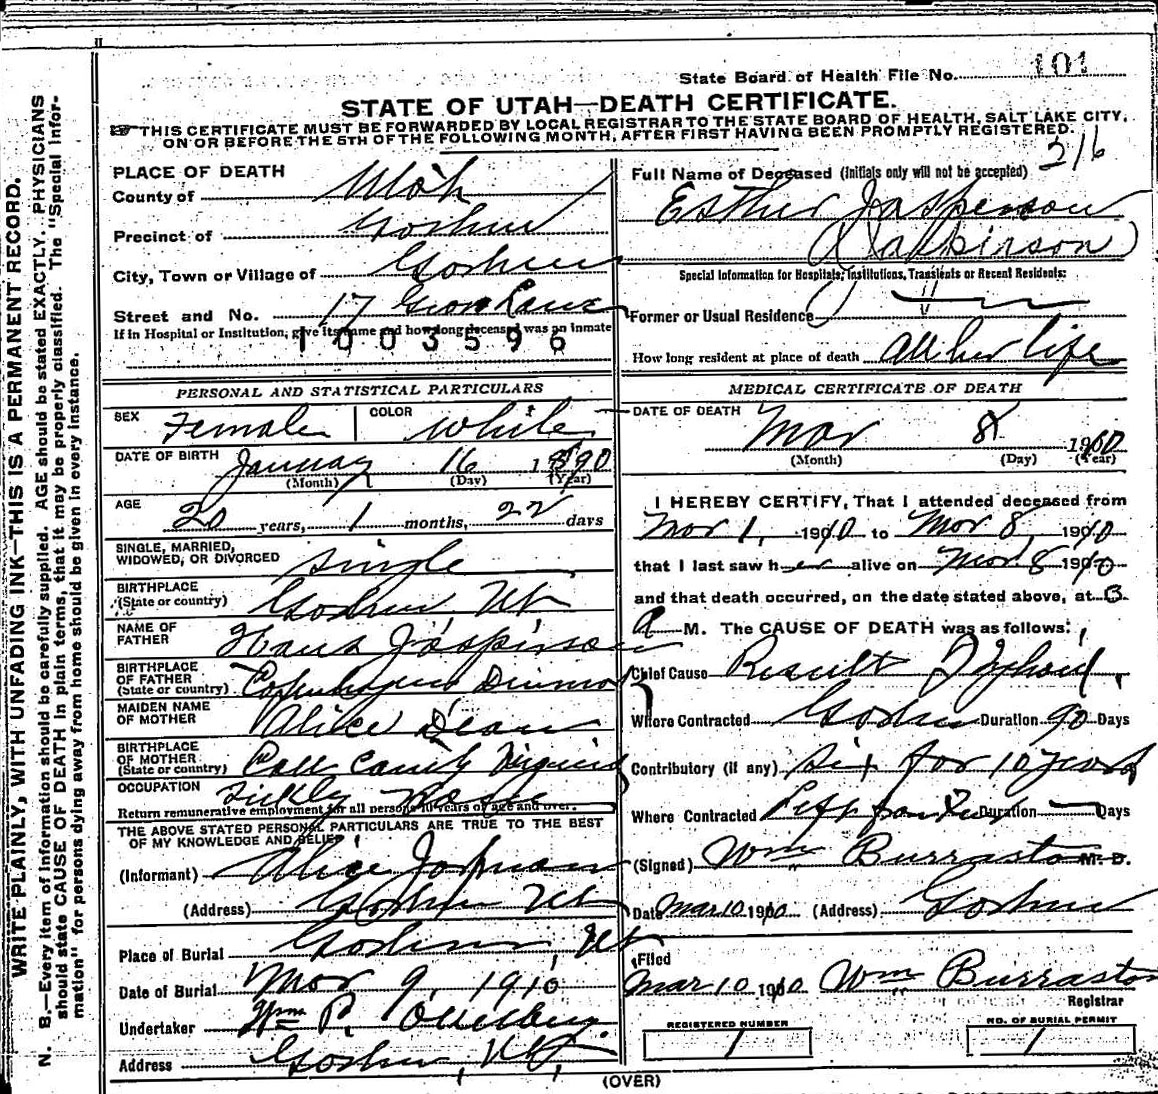 State Board of Health File No. 101
STATE OF UTAH—DEATH CERTIFICATE.
THIS CERTIFICATE MUST BE FORWARDED BY LOCAL REGISTRAR TO THE STATE BOARD OF HEALTH, SALT LAKE CITY,
ON OR BEFORE THE 5TH OF THE FOLLOWING MONTH, AFTER FIRST HAVING BEEN PROMPTLY REGISTERED.
216
WRITE PLAINLY, WITH UNFADING INK—THIS IS A PERMANENT RECORD.
N. B.—Every item of information should be carefully supplied. AGE should be stated EXACTLY. PHYSICIANS
should state CAUSE OF DEATH in plain terms, that it may be properly classified. The "Special Infor-
mation" for persons dying away from home should be given in every instance.
PLACE OF DEATH
County of Utah
Precinct of Goshen
City, Town or Village of Goshen
Street and No. 17
If in Hospital or Institution, give its name and how long deceased was an inmate
1003596
PERSONAL AND STATISTICAL PARTICULARS
SEX Female COLOR White
DATE OF BIRTH January 16 1890
(Month) (Day) (Year)
AGE 20 years, 1 months, 22 days
SINGLE, MARRIED,
WIDOWED, OR DIVORCED Single
BIRTHPLACE
(State or country) Goshen, Ut
NAME OF
FATHER Hans Jaspirson
BIRTHPLACE
OF FATHER
(State or country) Copenhagen
MAIDEN NAME
OF MOTHER Alice Dean
BIRTHPLACE
OF MOTHER
(State or country)
OCCUPATION Sickly
Return remunerative employment for all persons 10 years of age and over.
THE ABOVE STATED PERSONAL PARTICULARS ARE TRUE TO THE BEST
OF MY KNOWLEDGE AND BELIEF
(Informant) Alice
(Address) Goshen Ut
Place of Burial Goshen, Ut
Date of Burial Mar 9, 1910
Undertaker Wm P.
Address Goshen, Ut,
Full Name of Deceased (Initials only will not be accepted)
Esther Jasperson
(Jaspirson)
Special Information for Hospitals, Institutions, Transients or Recent Residents:
Former or Usual Residence
How long resident at place of death all her life
MEDICAL CERTIFICATE OF DEATH
DATE OF DEATH Mar 8 1910
(Month) (Day) (Year)
I HEREBY CERTIFY, That I attended deceased from
Mar 1, 1910 to Mar 8, 1910
that I last saw her alive on Mar. 8 1910
and that death occurred, on the date stated above, at 3
A M. The CAUSE OF DEATH was as follows:
Chief Cause Result Typhoid,
Where Contracted Goshen Duration 90 Days
Contributory (if any) for 10 years
Where Contracted Duration Days
(Signed) Wm Burraston M. D.
Date Mar 10 1910 (Address) Goshen
Filed
Mar 10 1910 Wm Burraston
Registrar
REGISTERED NUMBER
1
NO. OF BURIAL PERMIT
1
(OVER)